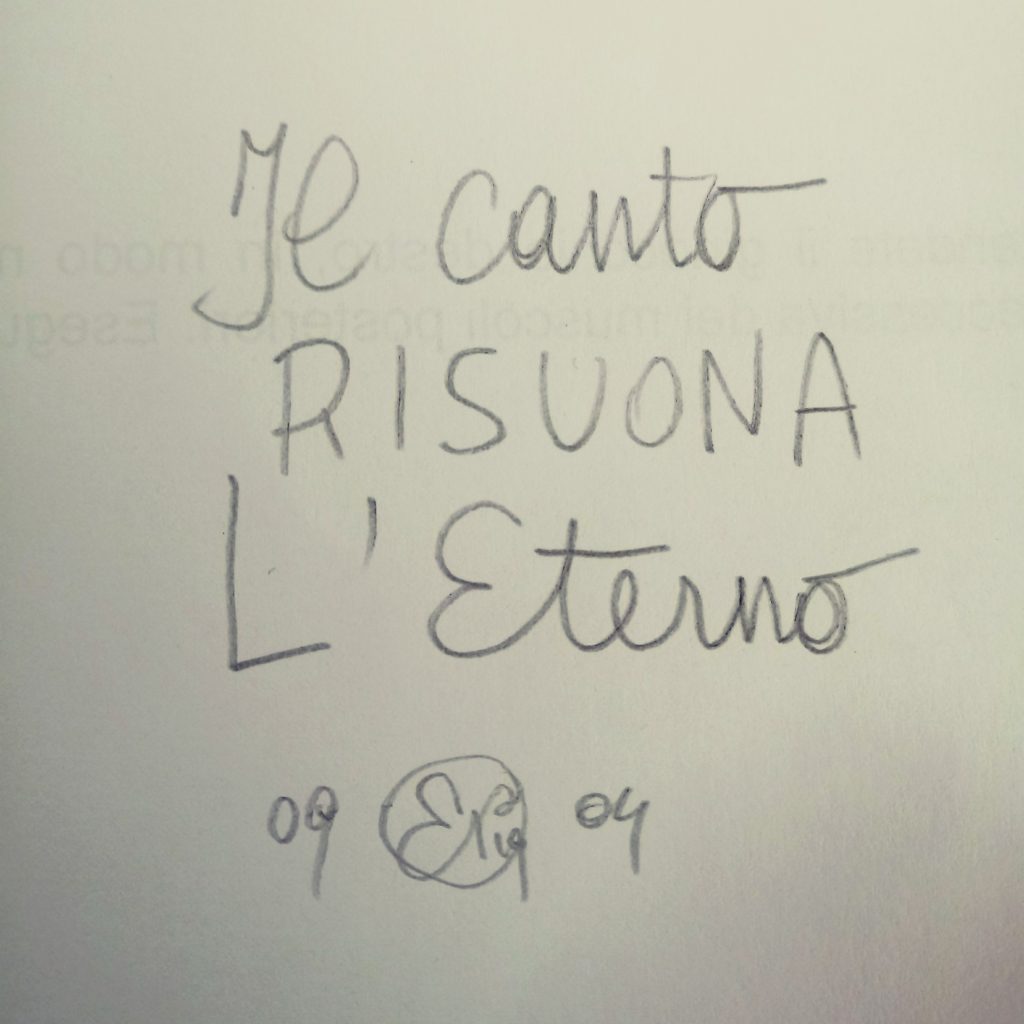 Il canto
RISUONA
L'Eterno
09 04